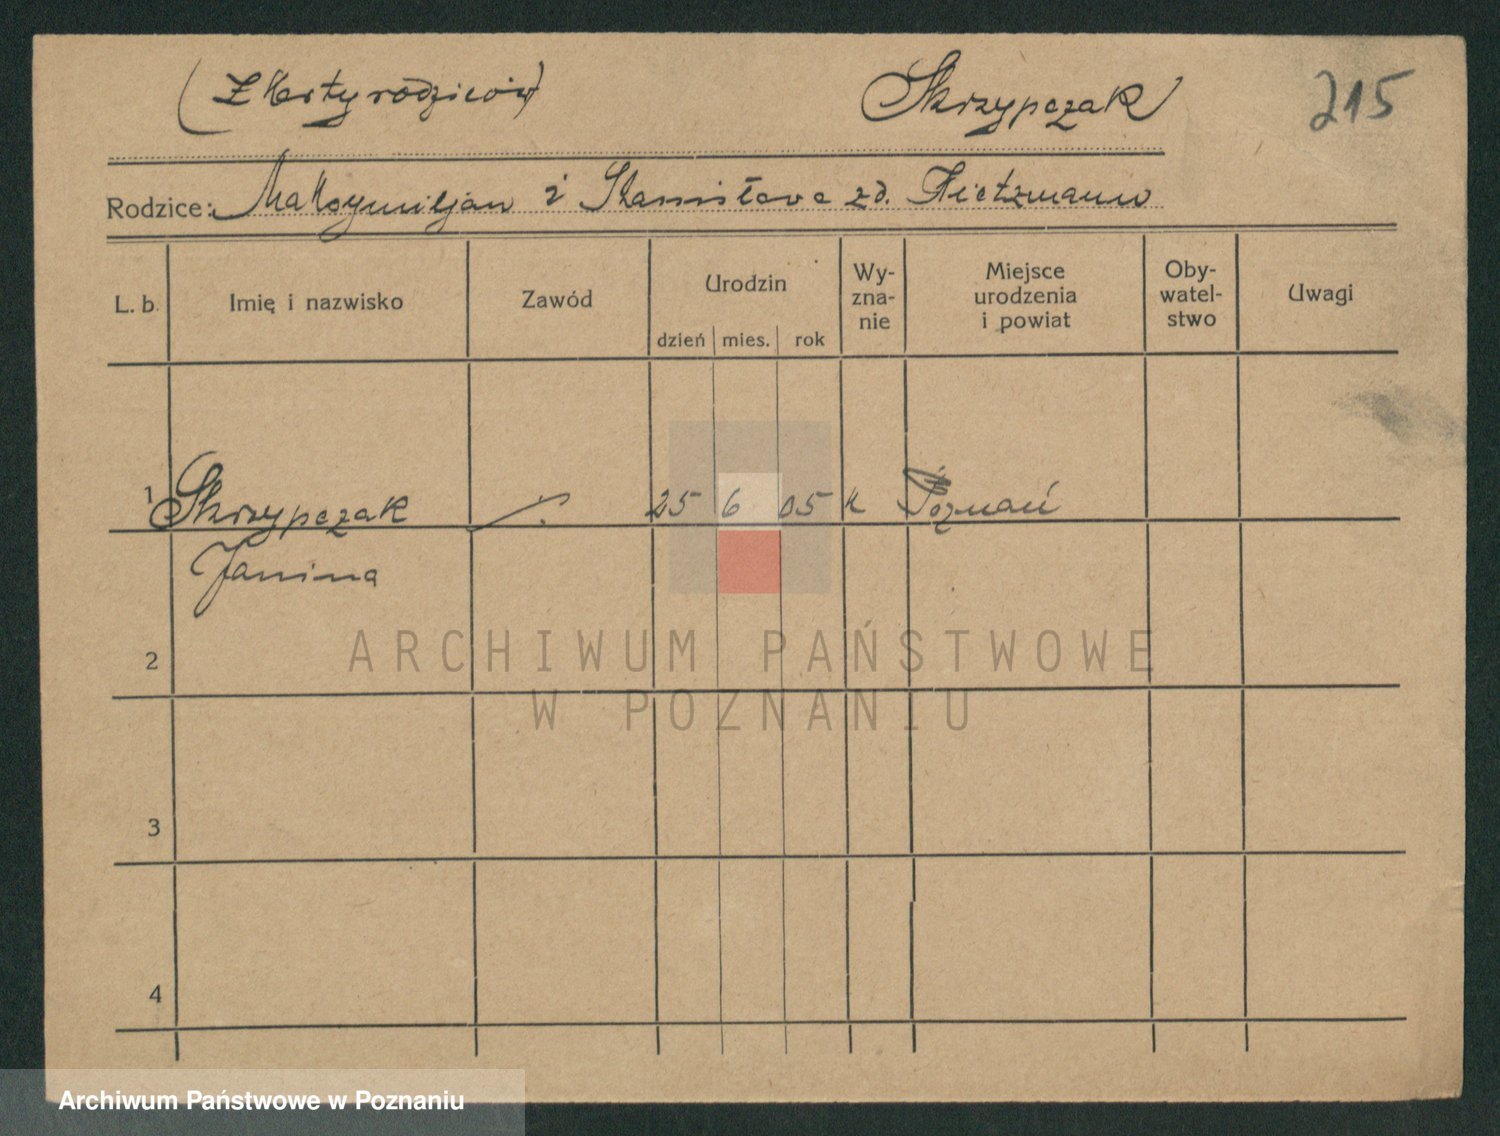 (Z Karty rodziców) Skrzypczak 215
Rodzice: Maksymiljan i Stanisława zd. Nietzmann
L. b. Imię i nazwisko Zawód Urodzin Wy- Miejsce Oby- Uwagi
zna- urodzenia watel-
nie i powiat stwo
dzień mies. rok
1 Skrzypczak 25 6 05 k Poznań
Janina
2
ARCHIWUM PAŃSTWOWE
W POZNANIU
3
4
Archiwum Państwowe w Poznaniu